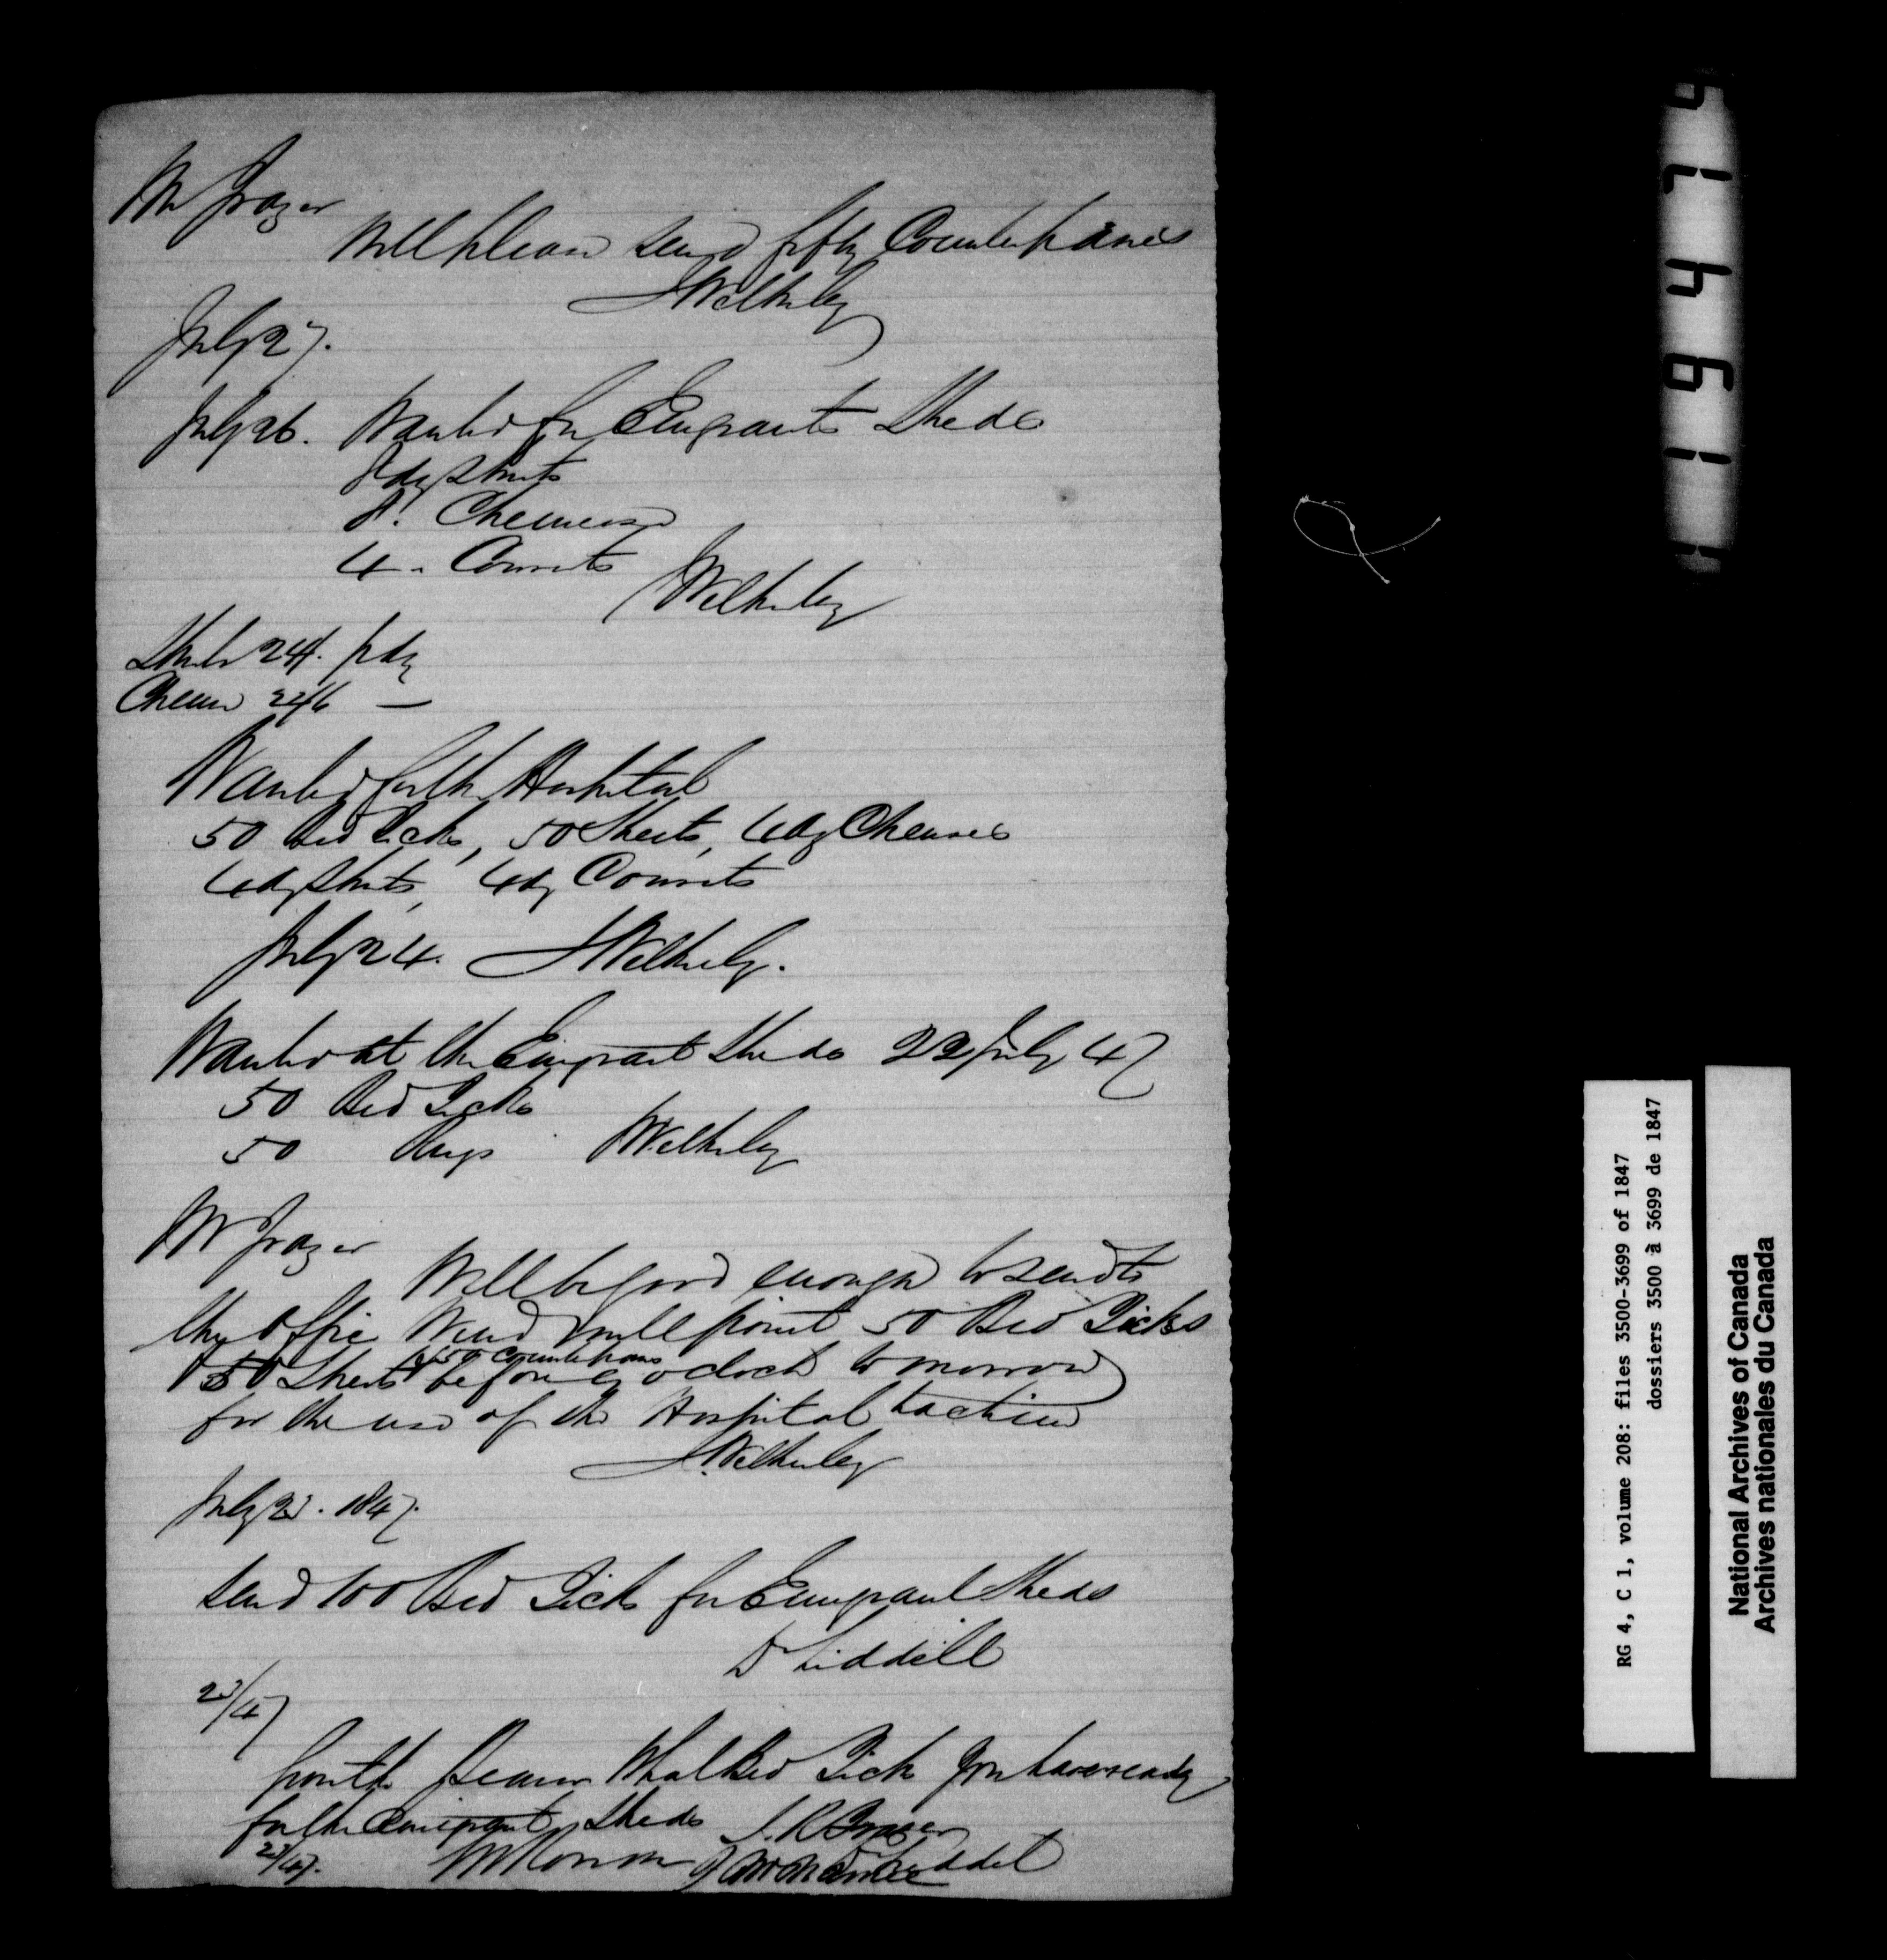 Mr Frazer
Will please send fifty Counterpanes
J Wetherley
July 27.
July 26. Wanted for Emigrants Sheds
dz Shirts
Chemeses
4 - Corsets
J Wetherley
Shirts 24/. p dz
Chem 22/6 —
Wanted for the Hospital
50 Bed Ticks, 50 Sheets, 4 dz Chemises
4 dz Shirts, 4 dz
July 24. J Wetherley.
Wanted at the Emigrant Sheds 22 July 47
50 Bed Ticks
50 Rugs J Wetherley
Mr Frazer
Will be good enough to send to
the Office Wind mill point 50 Bed Ticks
& 50 Counterpanes
50 Sheets before 9 oclock tomorrow
for the use of the Hospital
J. Wetherley
July 23. 1847.
Send 100 Bed Ticks for Emigrant Sheds
D Liddell
23/47
Bed Ticks you have ready
for the Emigrant Sheds
23/47. Liddel
1 6 4 4 7
RG 4, C 1, volume 208: files 3500-3699 of 1847
dossiers 3500 à 3699 de 1847
National Archives of Canada
Archives nationales du Canada